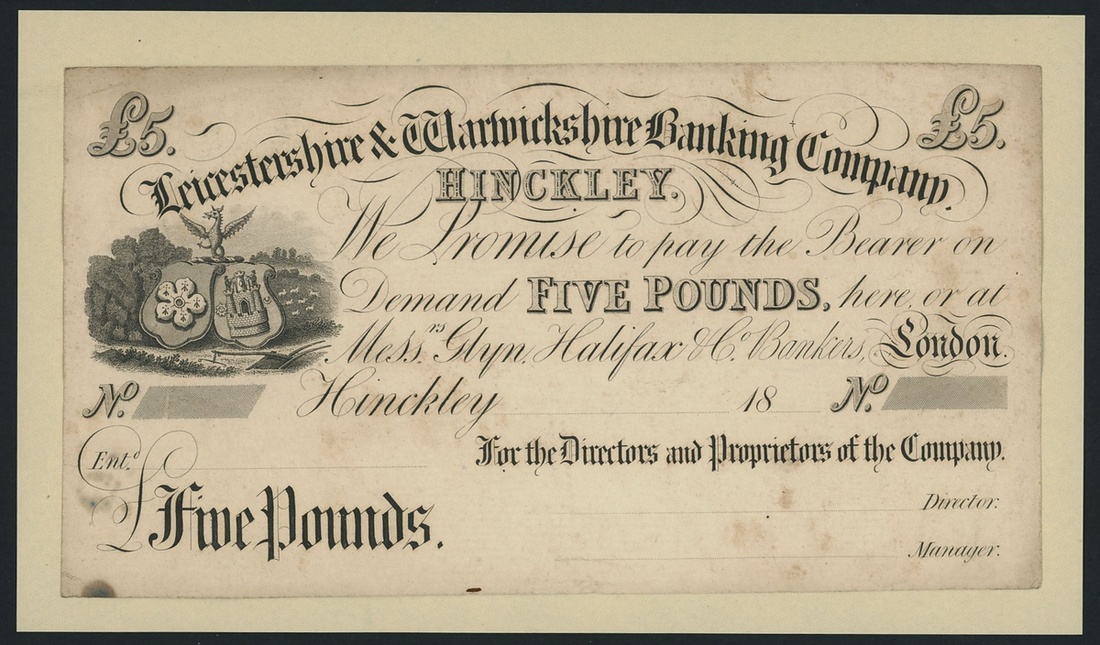 £5. £5.
Leicestershire & Warwickshire Banking Company.
HINCKLEY.
We Promise to pay the Bearer on
Demand FIVE POUNDS, here, or at
Mess.rs Glyn, Halifax & Co. Bankers, London.
No. Hinckley 18 No.
Ent.d For the Directors and Proprietors of the Company.
£ Five Pounds. Director.
Manager.